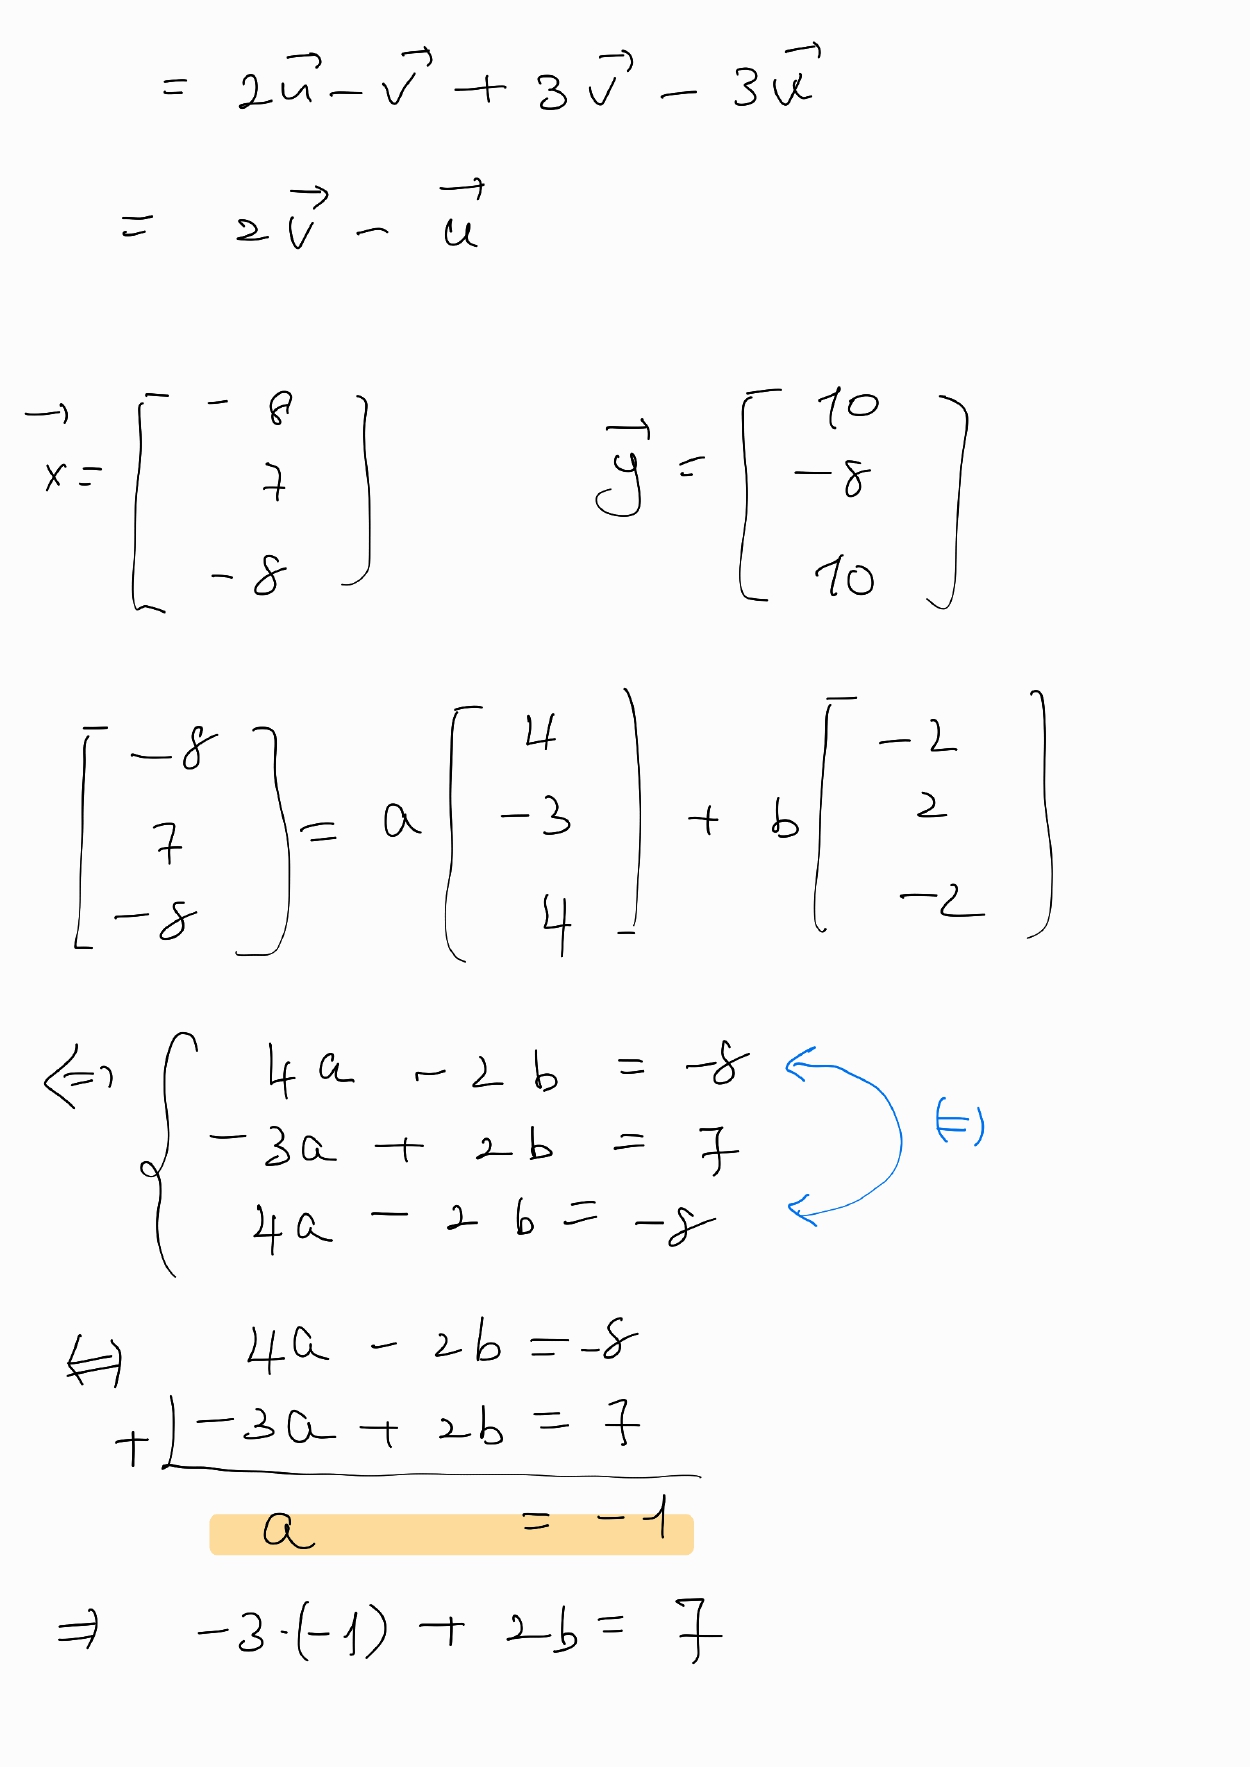 = 2u⃗ - v⃗ + 3v⃗ - 3u⃗
= 2v⃗ - u⃗
x⃗ = [ -8 7 -8 ] y⃗ = [ 10 -8 10 ]
[ -8 7 -8 ] = a [ 4 -3 4 ] + b [ -2 2 -2 ]
⇔ { 4a - 2b = -8
-3a + 2b = 7 ⇔
4a - 2b = -8
⇔ 4a - 2b = -8
+ | -3a + 2b = 7
a = -1
⇒ -3·(-1) + 2b = 7